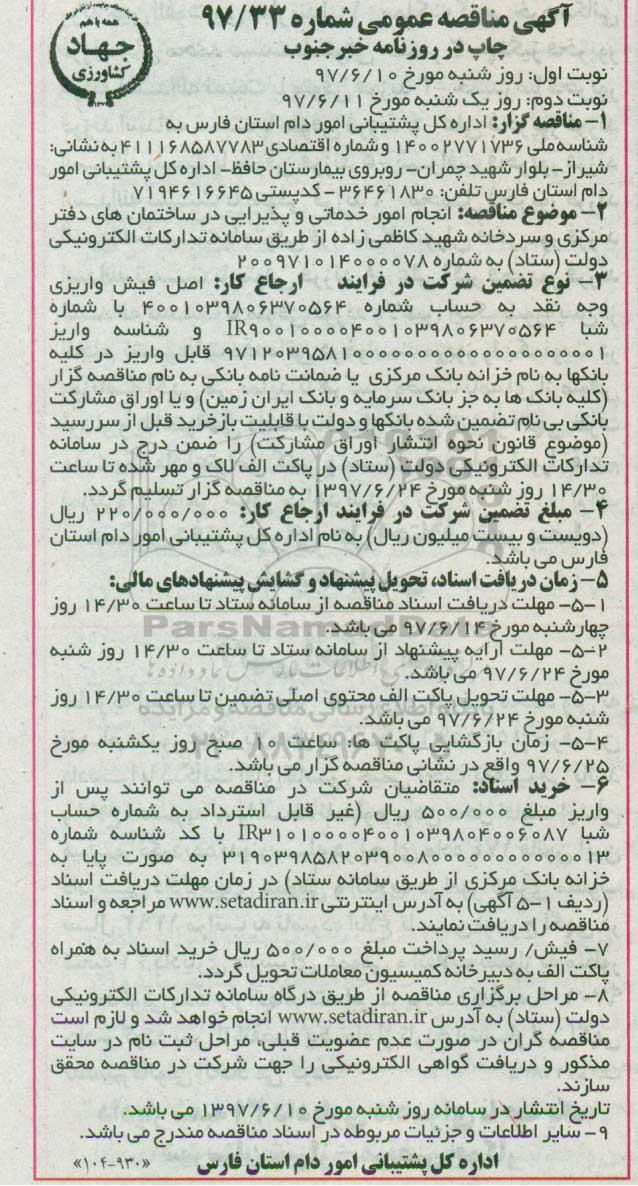 آگهی مناقصه عمومی شماره ۹۷/۳۳
چاپ در روزنامه خبر جنوب
همه با هم
جهاد
کشاورزی
نوبت اول: روز شنبه مورخ ۹۷/۶/۱۰
نوبت دوم: روز یک شنبه مورخ ۹۷/۶/۱۱
۱- مناقصه گزار: اداره کل پشتیبانی امور دام استان فارس به
شناسه ملی ۱۴۰۰۲۷۷۱۷۳۶ و شماره اقتصادی ۴۱۱۱۶۸۵۸۷۷۸۳ به نشانی:
شیراز- بلوار شهید چمران- روبروی بیمارستان حافظ- اداره کل پشتیبانی امور
دام استان فارس تلفن: ۳۶۴۶۱۸۳۰ - کدپستی ۷۱۹۴۶۱۶۶۴۵
۲- موضوع مناقصه: انجام امور خدماتی و پذیرایی در ساختمان های دفتر
مرکزی و سردخانه شهید کاظمی زاده از طریق سامانه تدارکات الکترونیکی
دولت (ستاد) به شماره ۲۰۰۹۷۱۰۱۴۰۰۰۰۷۸
۳- نوع تضمین شرکت در فرایند ارجاع کار: اصل فیش واریزی
وجه نقد به حساب شماره ۴۰۰۱۰۳۹۸۰۶۳۷۰۵۶۴ با شماره
شبا IR۹۰۰۱۰۰۰۰۴۰۰۱۰۳۹۸۰۶۳۷۰۵۶۴ و شناسه واریز
قابل واریز در کلیه
بانکها به نام خزانه بانک مرکزی یا ضمانت نامه بانکی به نام مناقصه گزار
(کلیه بانک ها به جز بانک سرمایه و بانک ایران زمین) و یا اوراق مشارکت
بانکی بی نام تضمین شده بانکها و دولت با قابلیت بازخرید قبل از سررسید
(موضوع قانون نحوه انتشار اوراق مشارکت) را ضمن درج در سامانه
تدارکات الکترونیکی دولت (ستاد) در پاکت الف لاک و مهر شده تا ساعت
۱۴/۳۰ روز شنبه مورخ ۱۳۹۷/۶/۲۴ به مناقصه گزار تسلیم گردد.
۴- مبلغ تضمین شرکت در فرایند ارجاع کار: ۲۲۰/۰۰۰/۰۰۰ ریال
(دویست و بیست میلیون ریال) به نام اداره کل پشتیبانی امور دام استان
فارس می باشد.
۵- زمان دریافت اسناد، تحویل پیشنهاد و گشایش پیشنهادهای مالی:
۵-۱- مهلت دریافت اسناد مناقصه از سامانه ستاد تا ساعت ۱۴/۳۰ روز
چهارشنبه مورخ ۹۷/۶/۱۴ می باشد.
ParsNamadData
۵-۲- مهلت ارایه پیشنهاد از سامانه ستاد تا ساعت ۱۴/۳۰ روز شنبه
مورخ ۹۷/۶/۲۴ می باشد.
۵-۳- مهلت تحویل پاکت الف محتوی اصلی تضمین تا ساعت ۱۴/۳۰ روز
شنبه مورخ ۹۷/۶/۲۴ می باشد.
۵-۴- زمان بازگشایی پاکت ها، ساعت ۱۰ صبح روز یکشنبه مورخ
۹۷/۶/۲۵ واقع در نشانی مناقصه گزار می باشد.
۶- خرید اسناد: متقاضیان شرکت در مناقصه می توانند پس از
واریز مبلغ ۵۰۰/۰۰۰ ریال (غیر قابل استرداد به شماره حساب
شبا IR۳۱۰۱۰۰۰۰۴۰۰۱۰۳۹۸۰۴۰۰۶۰۸۷ با کد شناسه شماره
به صورت پایا به
خزانه بانک مرکزی از طریق سامانه ستاد) در زمان مهلت دریافت اسناد
(ردیف ۱-۵ آگهی) به آدرس اینترنتی www.setadiran.ir مراجعه و اسناد
مناقصه را دریافت نمایند.
۷- فیش/ رسید پرداخت مبلغ ۵۰۰/۰۰۰ ریال خرید اسناد به همراه
پاکت الف به دبیرخانه کمیسیون معاملات تحویل گردد.
۸- مراحل برگزاری مناقصه از طریق درگاه سامانه تدارکات الکترونیکی
دولت (ستاد) به آدرس www.setadiran.ir انجام خواهد شد و لازم است
مناقصه گران در صورت عدم عضویت قبلی، مراحل ثبت نام در سایت
مذکور و دریافت گواهی الکترونیکی را جهت شرکت در مناقصه محقق
سازند.
تاریخ انتشار در سامانه روز شنبه مورخ ۱۳۹۷/۶/۱۰ می باشد.
۹- سایر اطلاعات و جزئیات مربوطه در اسناد مناقصه مندرج می باشد.
اداره کل پشتیبانی امور دام استان فارس
«۱۰۴-۹۳۰»